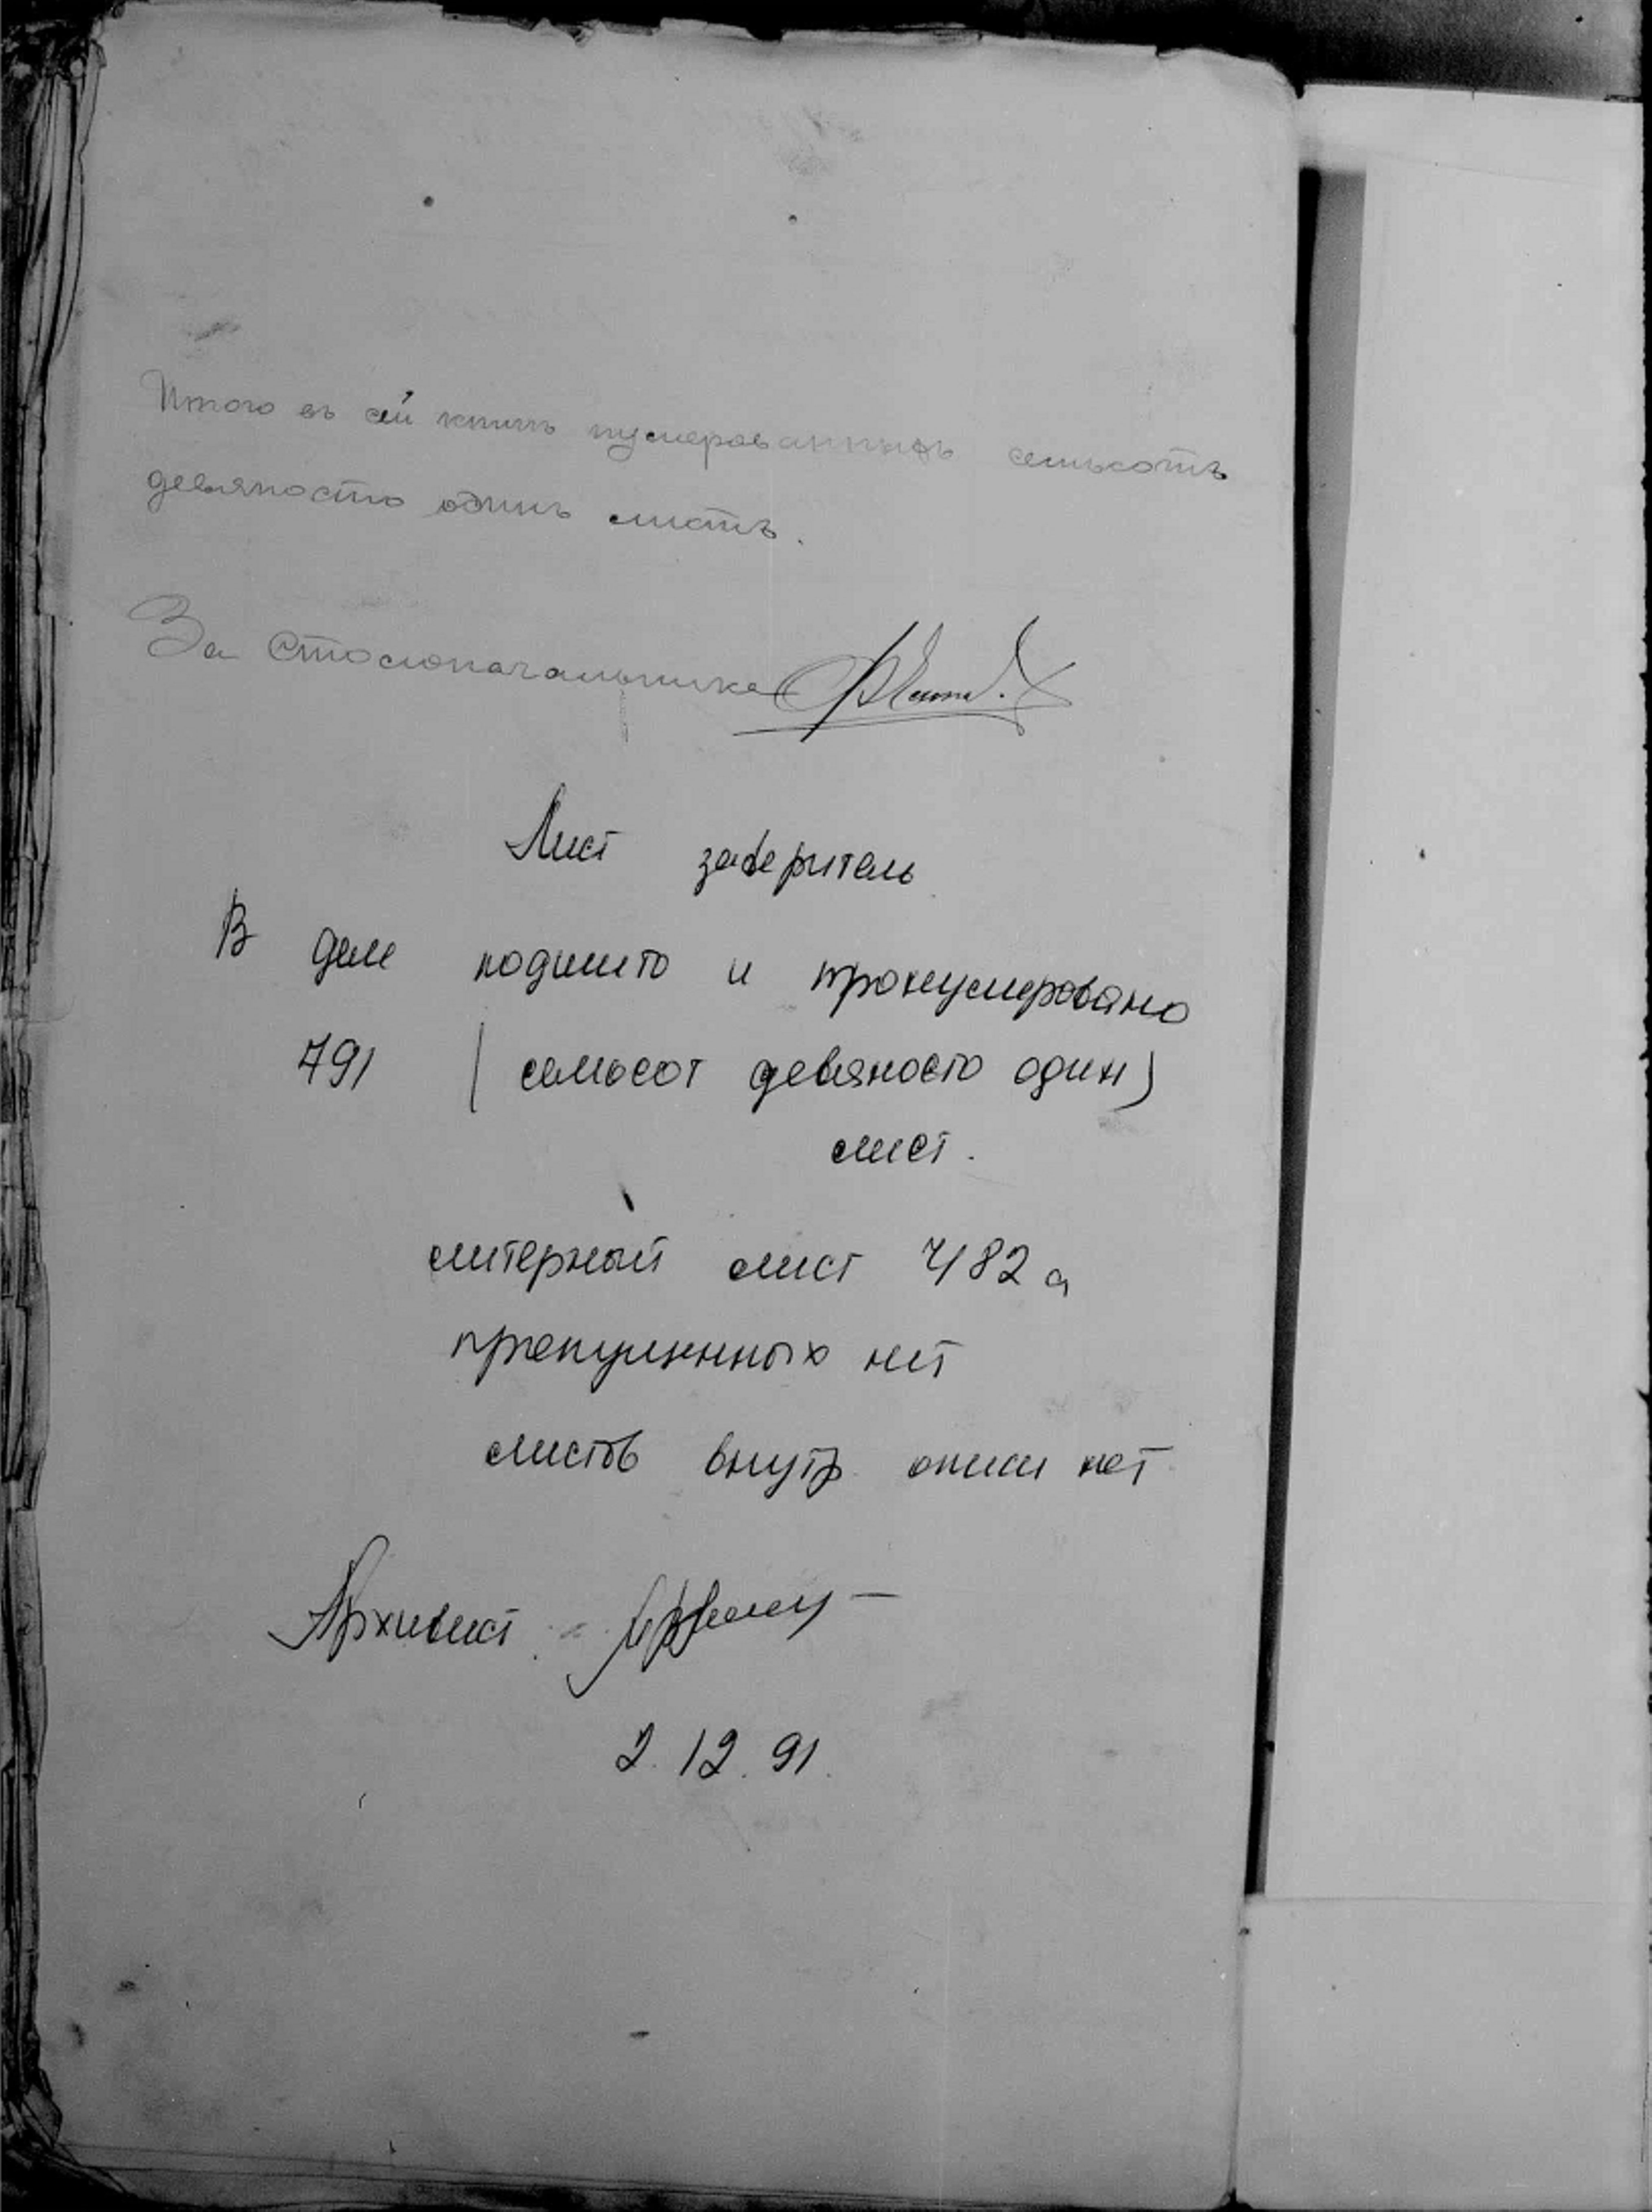 Итого въ сей книгѣ нумерованныхъ семьсотъ
девяносто одинъ листъ.
За Столоначальника
Лист заверитель
В деле подшито и пронумеровано
791 (семьсот девяносто один)
лист.
литерный лист 482а
пропущенных нет
листов внутр. описи нет
Архивист
2.12.91.